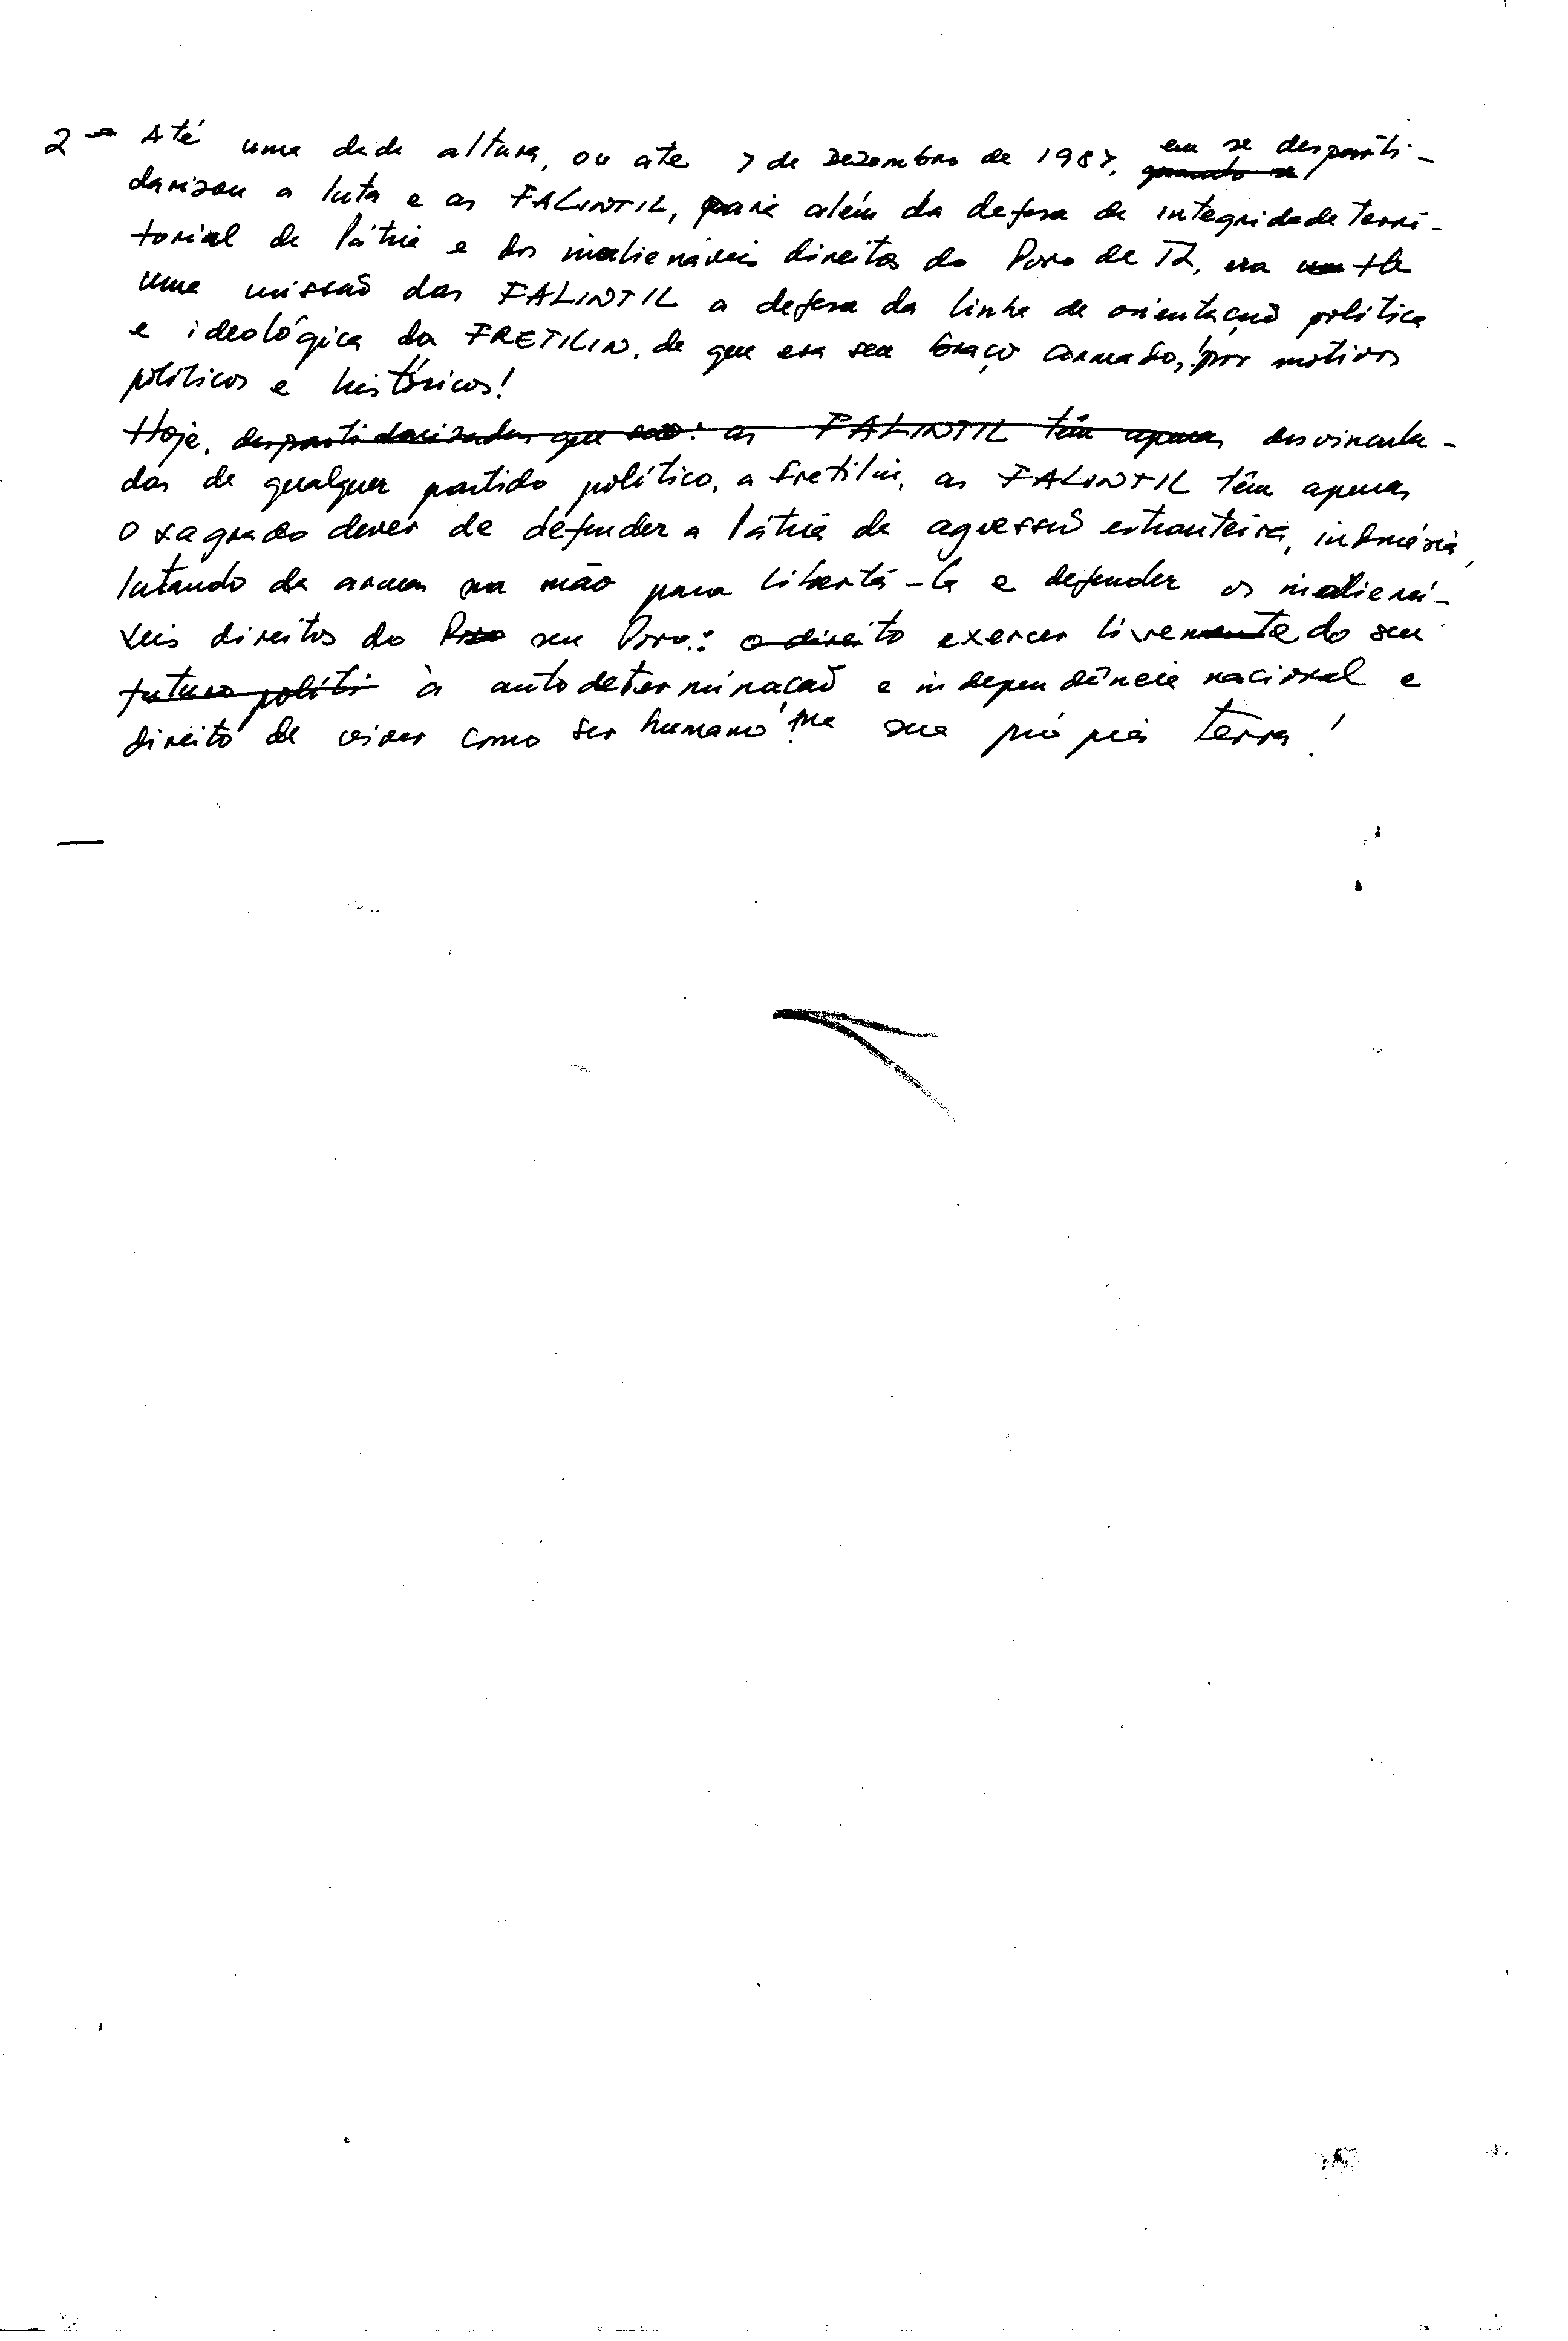 2 - Até uma dada altura, ou ate 7 de Dezembro de 1987, em se desparti-
darizou a luta e as FALINTIL, para além da defesa da integridade terri-
torial da Pátria e dos inalienáveis direitos do Povo de TL, era
uma missão das FALINTIL a defesa da linha de orientação política
e ideológica da FRETILIN, de que era seu braço armado, por motivos
políticos e históricos!
Hoje, despartidarizadas que são: as FALINTIL têm apenas desvincula-
das de qualquer partido político, a Fretilin, as FALINTIL têm apenas
o sagrado dever de defender a Pátria da agressão estranteira, indonésia,
lutando de armas na mão para libertá-la e defender os inaliená-
veis direitos do Povo seu Povo: o direito exercer livremente do seu
futuro políti à autodeterminação e independência nacional e
direito de viver como ser humano na sua própria terra!